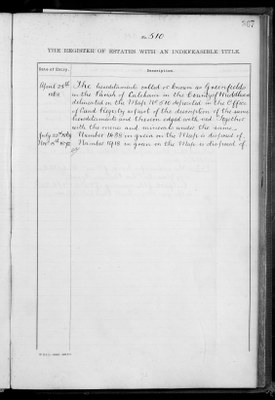 507
No 510
THE REGISTER OF ESTATES WITH AN INDEFEASIBLE TITLE.
Date of Entry. Description.
April 28th The hereditaments called or known as Greenfields
in the Parish of in the County of Middlesex
delineated in the Map No 510 deposited in the Office
of Land Registry as part of the description of the same
hereditaments and thereon edged with red Together
with the mines and minerals under the same.
July Number 1498 in green on the Map is disposed of
Number 1918 in green on the Map is disposed of